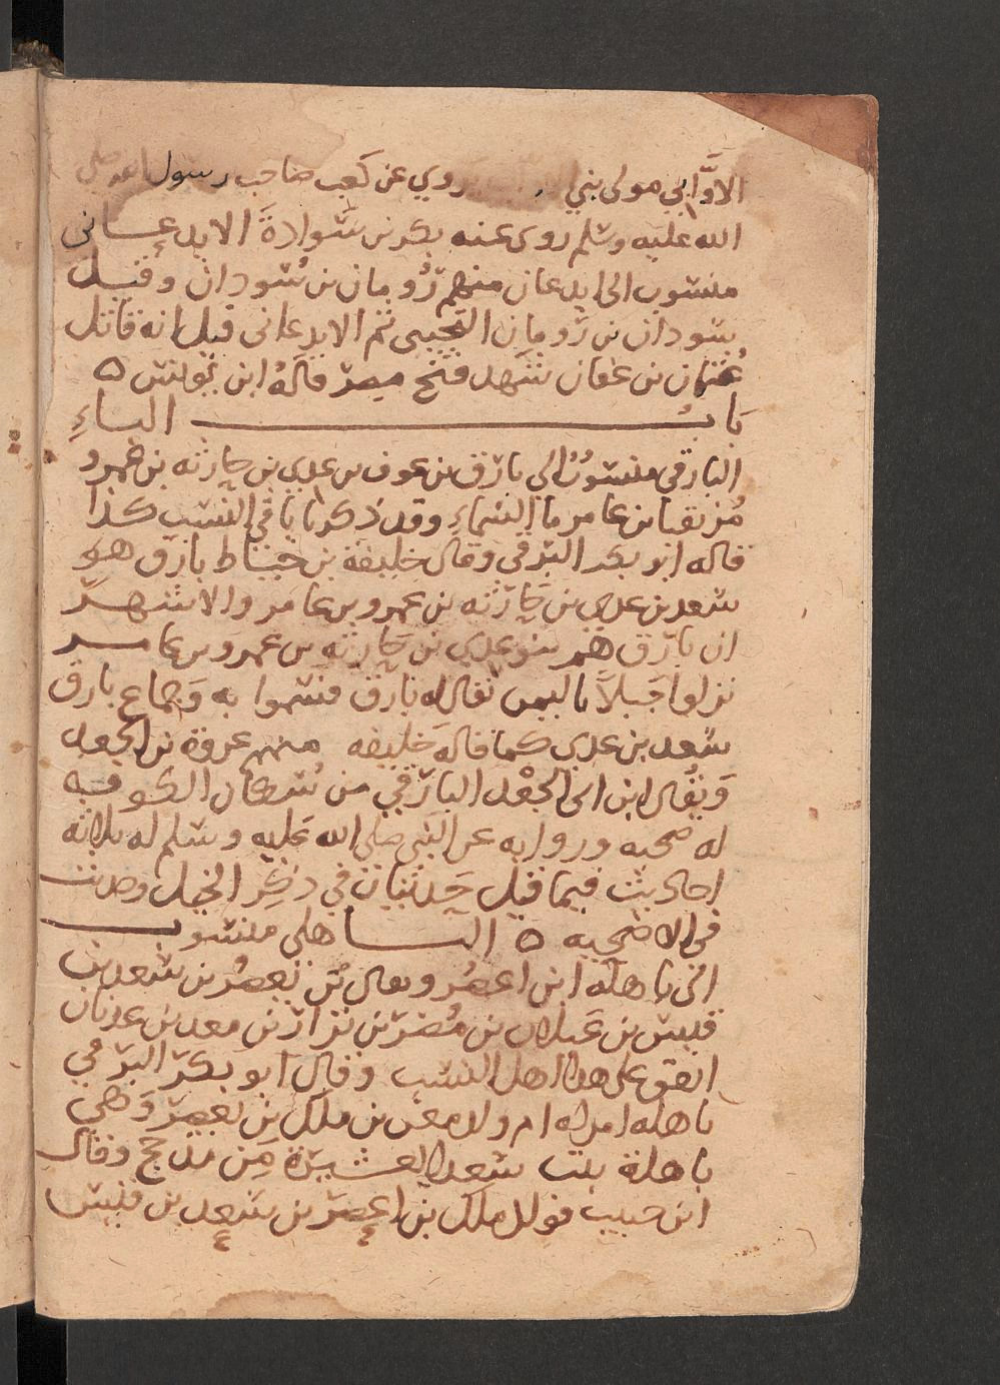 الاوَّابي مولى بني روي عن كعب صاحب رسول الله صلى
الله عليه وسلم روى عنه بكر بن سَوَادةَ الايدعــاني
منسوب الى ايدعان منهم رُومان بن سُودان وقيــل
سودان بن رُومان التجيبي ثم الايدعاني قيل انه قاتل
عُثمان بن عفان شهد فتح مصر قاله ابن يونس ه
بَابُ الباءِ
البارقي منسوبٌ الى بارق بن عوف بن عدي بن حارثه بن عمرو
مُزيقيا بن عامر ما السماءِ وقد ذكرنا باقي النسب كذا
قاله ابو بكر البرقي وقال خليفة بن خياط بارق هو
سعد بن عدي بن حَارثه بن عمرو بن عامر والاشهــر
ان بارق هم بنو عدي بن حَارثه بن عمرو بن عامــر
نزلوا جَبلاً باليمن يقال له بارق فسموا به وَجماع بارق
سعد بن عدي كما قاله خليفه منهم عروة بن الجعد
وَيُقال ابن ابي الجعْد البارقي من سُكان الكوفــه
له صحبه وروايه عن النبي صلى الله عليه وسلم له ثلاثه
احاديث فيما قيل حَديثان في ذكِر الخيل وحديث
في الاضحيه ه البــاهلي منسوبــ
الى باهله ابن اعصُر ويقال بن يَعصُر بن سَعد بن
قيس بن عَيلان بن مُضر بن نزار بن معد بن عدنان
اتفق على هذا اهل النسب وقال ابو بكر البرقي
باهله امراه ام ولد معن بن ملك بن يعصر وَهي
باهلة بنت سعد العشيرة مِن مذحج وقال
ابن حبيب فولد ملك بن اعصر بن سَعِد بن قيس